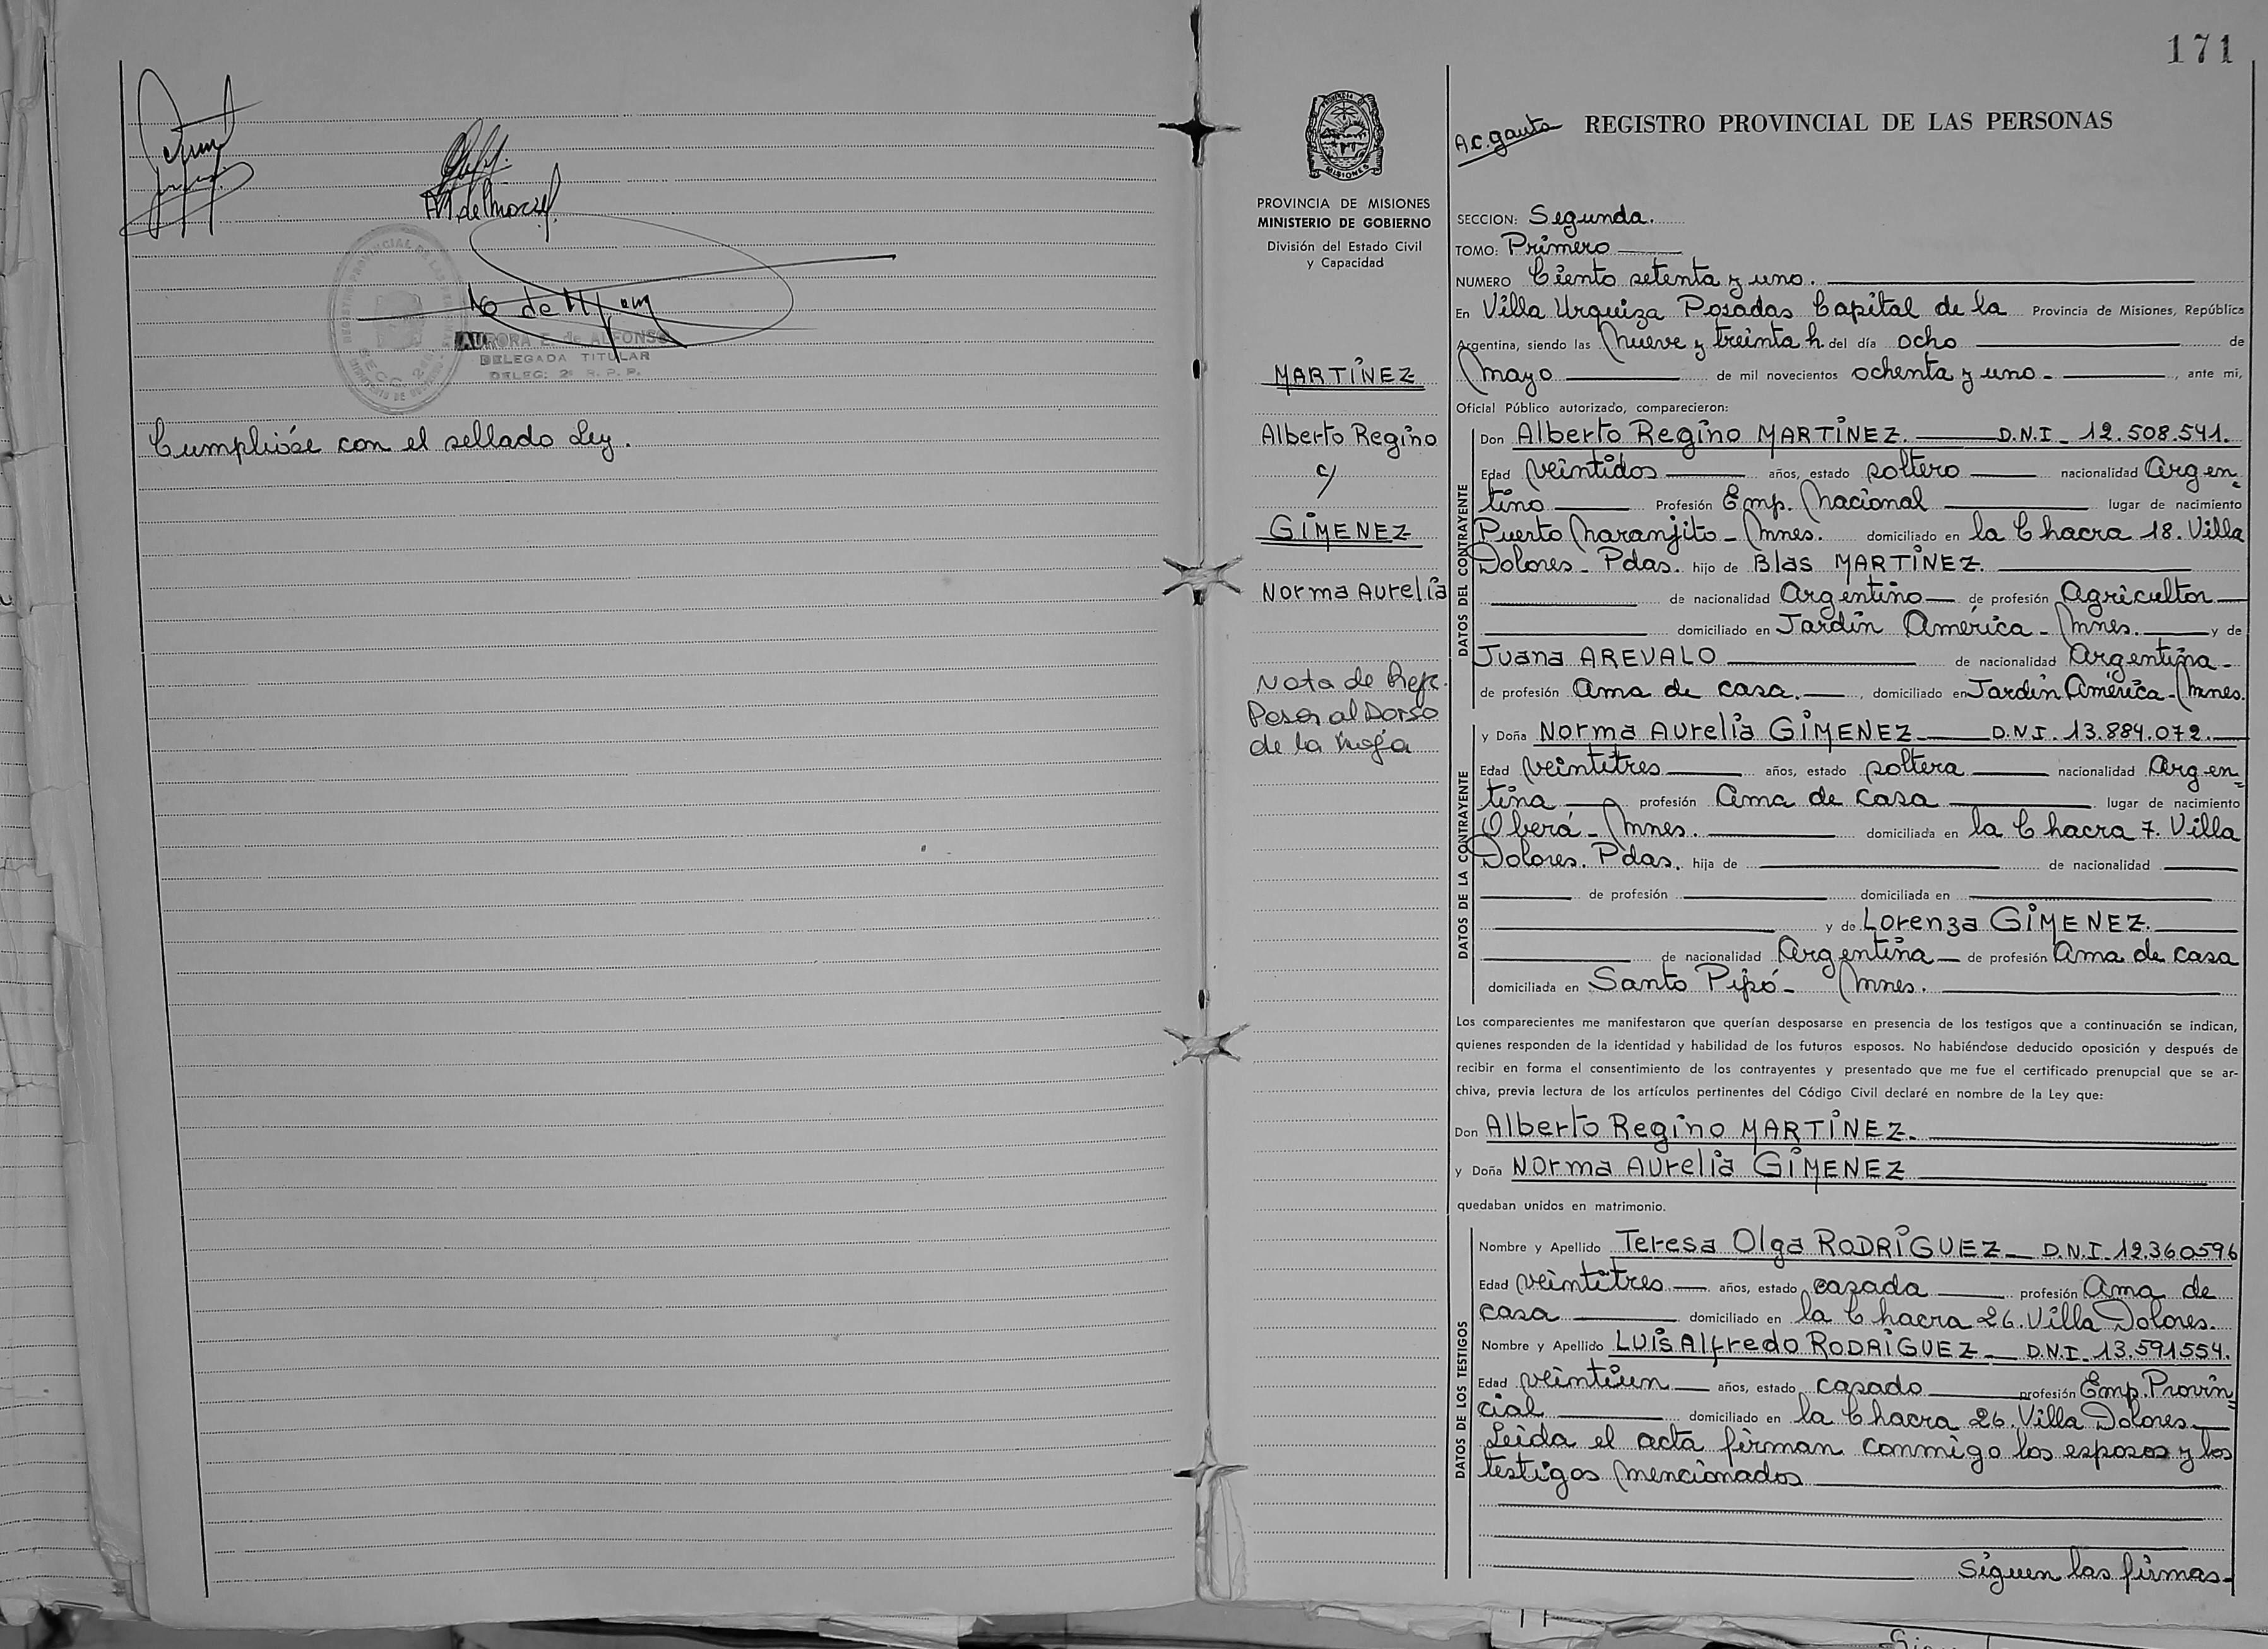 Cumplióse con el sellado Ley.
AURORA E. de ALFONSO
DELEGADA TITULAR
DELEG: 2ª R. P. P.
171
PROVINCIA DE MISIONES
MINISTERIO DE GOBIERNO
División del Estado Civil
y Capacidad
MARTÍNEZ
Alberto Regino
c/
GIMENEZ
Norma Aurelia
Nota de Ref.
al Dorso
de la hoja
REGISTRO PROVINCIAL DE LAS PERSONAS
SECCION: Segunda.
TOMO: Primero
NUMERO Ciento setenta y uno.
En Villa Urquiza Posadas Capital de la Provincia de Misiones, República
Argentina, siendo las Nueve y treinta h. del día ocho de
Mayo de mil novecientos ochenta y uno - , ante mi,
Oficial Público autorizado, comparecieron:
DATOS DEL CONTRAYENTE
Don Alberto Regino MARTÍNEZ. D.N.I - 12.508.541.
Edad veintidos años, estado soltero nacionalidad Argen=
tino Profesión Emp. Nacional lugar de nacimiento
Puerto Naranjito - Mnes. domiciliado en la Chacra 18. Villa
Dolores - Pdas. hijo de Blas MARTÍNEZ.
de nacionalidad Argentino de profesión Agricultor
domiciliado en Jardín América - Mnes. y de
Juana AREVALO de nacionalidad Argentina -
de profesión Ama de casa. , domiciliado en Jardín América - Mnes.
DATOS DE LA CONTRAYENTE
y Doña Norma Aurelia GIMENEZ D.N.I. 13.884.072.
Edad veintitres años, estado soltera nacionalidad Argen=
tina profesión Ama de casa lugar de nacimiento
Oberá - Mnes. domiciliada en la Chacra 7. Villa
Dolores. Pdas. hija de de nacionalidad
de profesión domiciliada en
y de Lorenza GIMENEZ.
de nacionalidad Argentina de profesión Ama de casa
domiciliada en Santo Pipó - Mnes.
Los comparecientes me manifestaron que querían desposarse en presencia de los testigos que a continuación se indican,
quienes responden de la identidad y habilidad de los futuros esposos. No habiéndose deducido oposición y después de
recibir en forma el consentimiento de los contrayentes y presentado que me fue el certificado prenupcial que se ar-
chiva, previa lectura de los artículos pertinentes del Código Civil declaré en nombre de la Ley que:
Don Alberto Regino MARTÍNEZ.
y Doña Norma Aurelia GIMENEZ
quedaban unidos en matrimonio.
DATOS DE LOS TESTIGOS
Nombre y Apellido Teresa Olga RODRÍGUEZ D.N.I - 12.360596
Edad veintitres años, estado casada profesión Ama de
casa domiciliado en la Chacra 26. Villa Dolores.
Nombre y Apellido Luis Alfredo RODRÍGUEZ D.N.I - 13.591554.
Edad veintiun años, estado casado profesión Emp. Provin=
cial domiciliado en la Chacra 26. Villa Dolores
Leida el acta firman conmigo los esposos y los
testigos mencionados
Siguen las firmas -